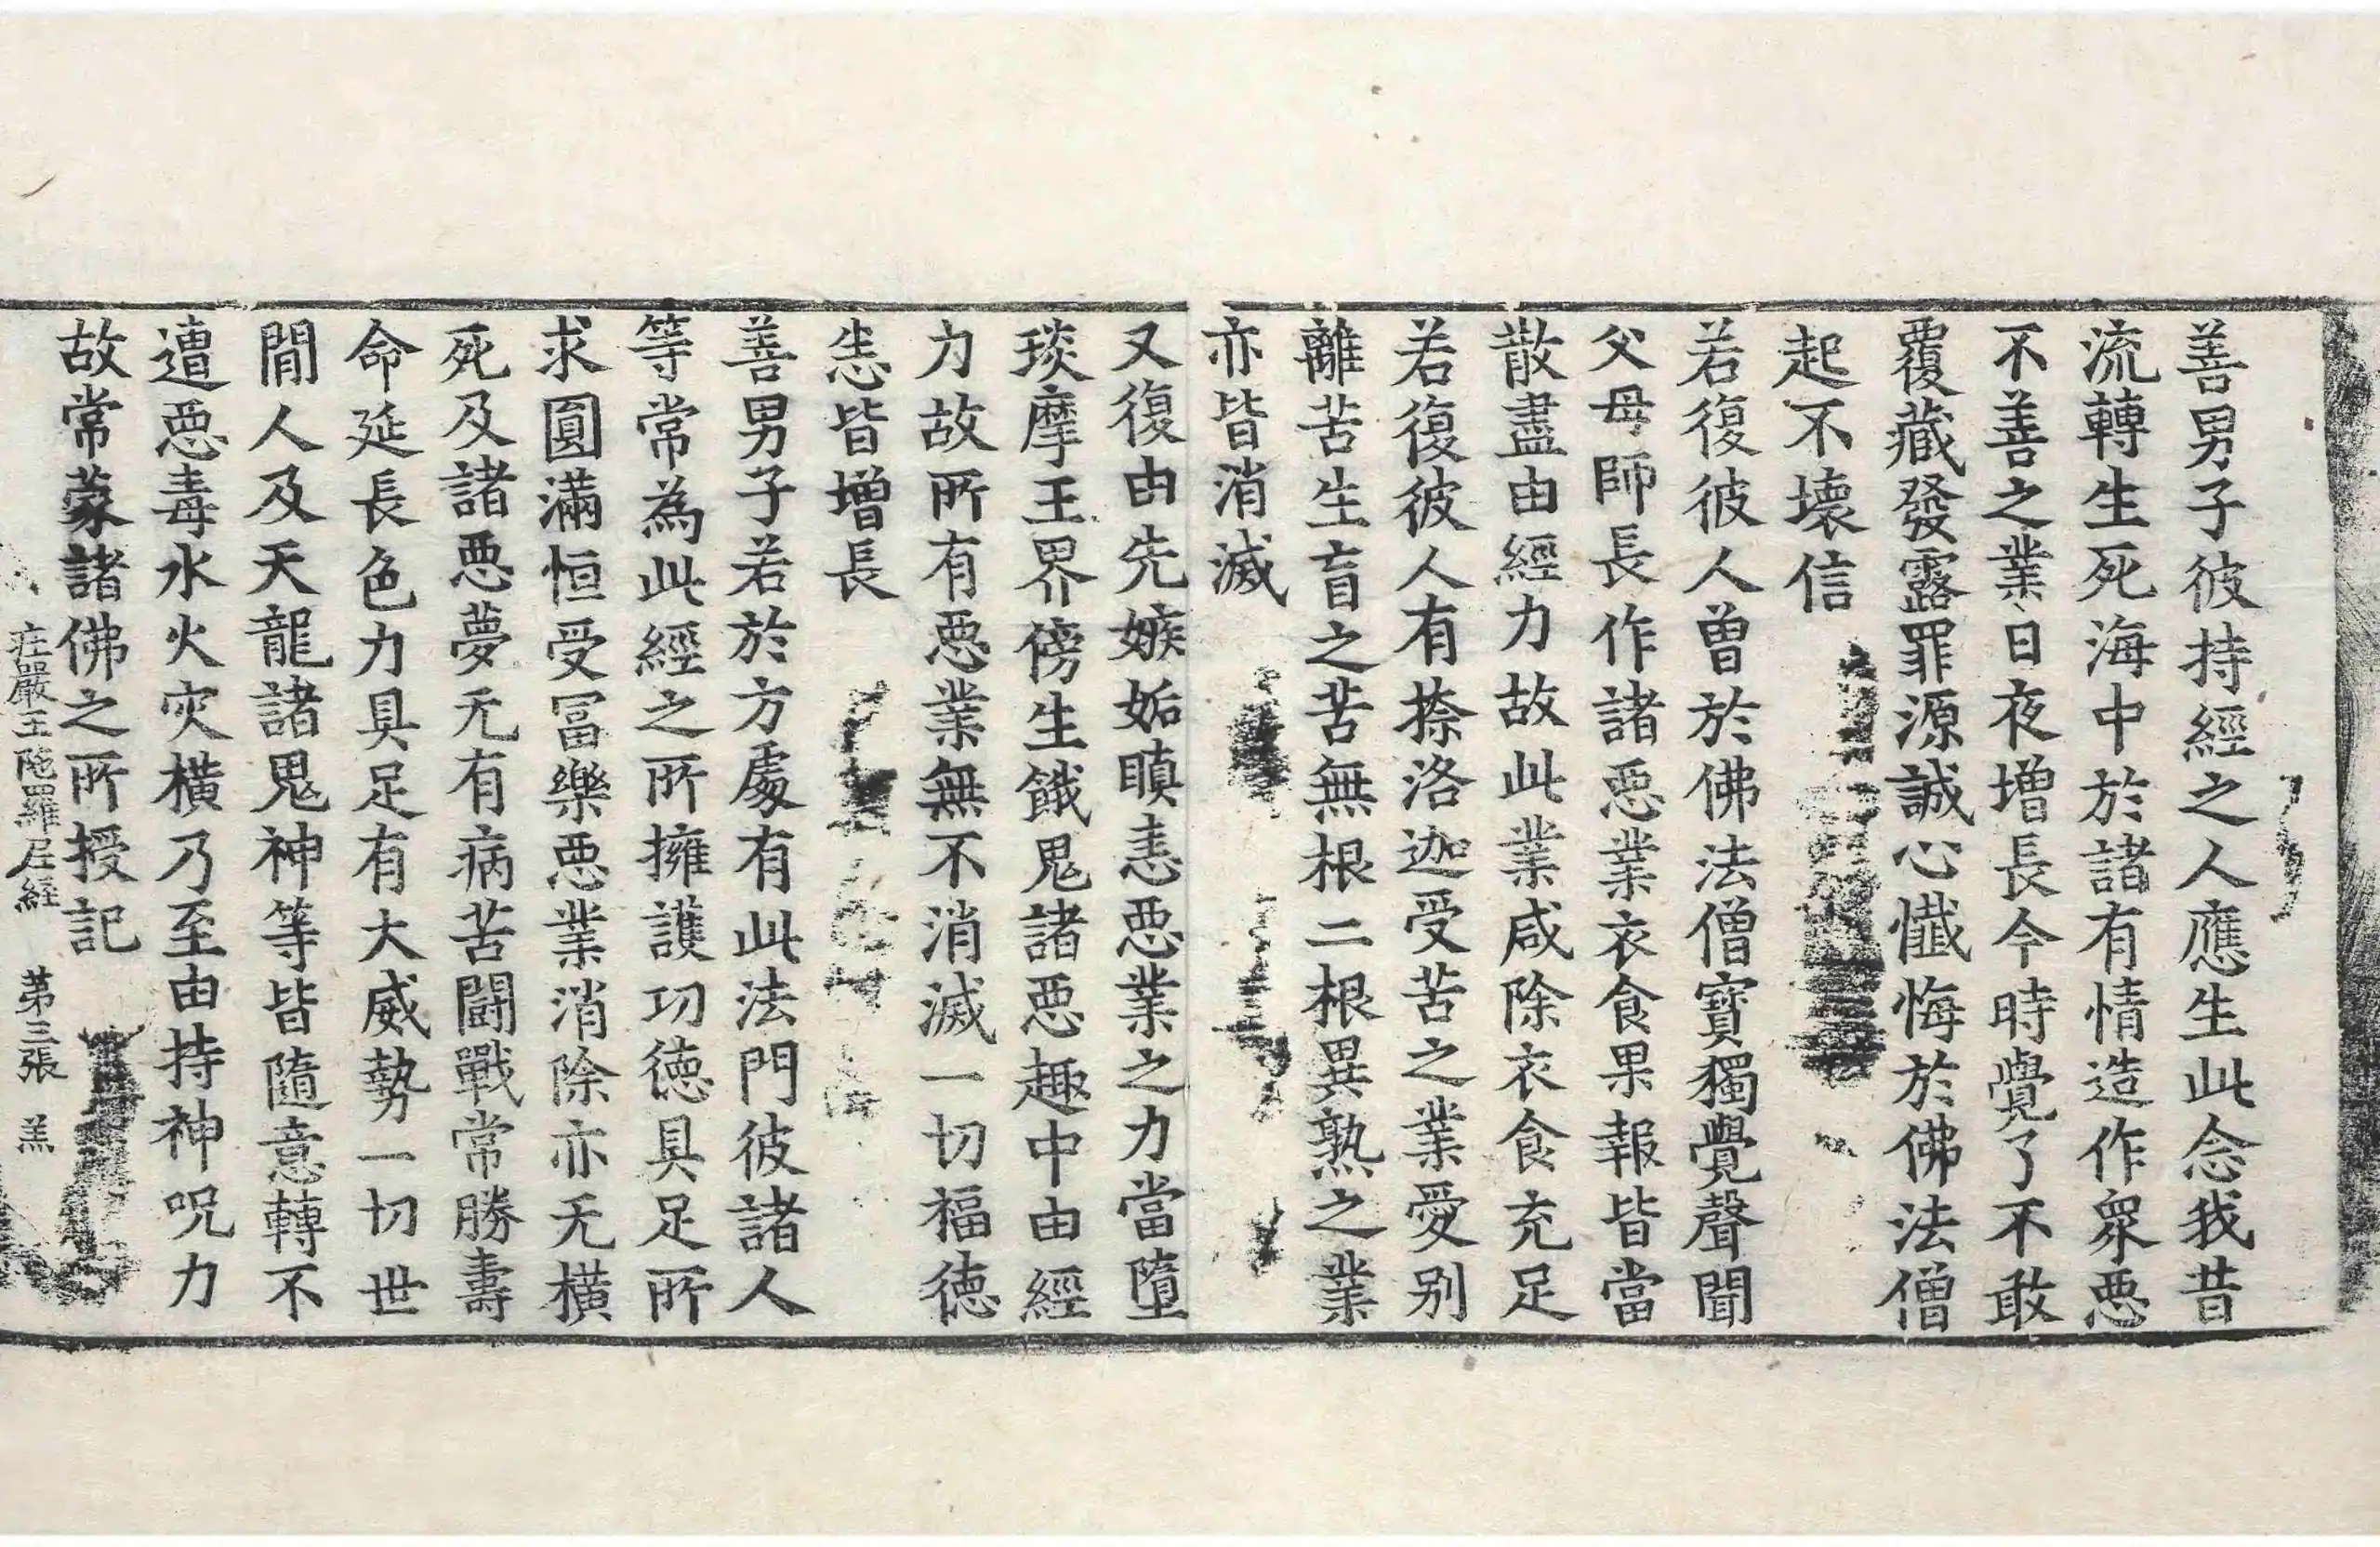 善男子彼持經之人應生此念我昔
流轉生死海中於諸有情造作衆惡
不善之業日夜增長今時覺了不敢
覆藏發露罪源誠心懺悔於佛法僧
起不壞信
若復彼人曾於佛法僧寶獨覺聲聞
父母師長作諸惡業衣食果報皆當
散盡由經力故此業咸除衣食充足
若復彼人有捺洛迦受苦之業愛别
離苦生盲之苦無根二根異熟之業
亦皆消滅
又復由先嫉妬瞋恚惡業之力當墮
琰摩王界傍生餓鬼諸惡趣中由經
力故所有惡業無不消滅一切福德
悉皆增長
善男子若於方處有此法門彼諸人
等常為此經之所擁護功德具足所
求圓滿恒受冨樂惡業消除亦无横
死及諸惡夢无有病苦鬪戰常勝壽
命延長色力具足有大威勢一切世
間人及天龍諸鬼神等皆隨意轉不
遭惡毒水火灾横乃至由持神呪力
故常蒙諸佛之所授記
莊嚴王陁羅尼經　苐三張　羔